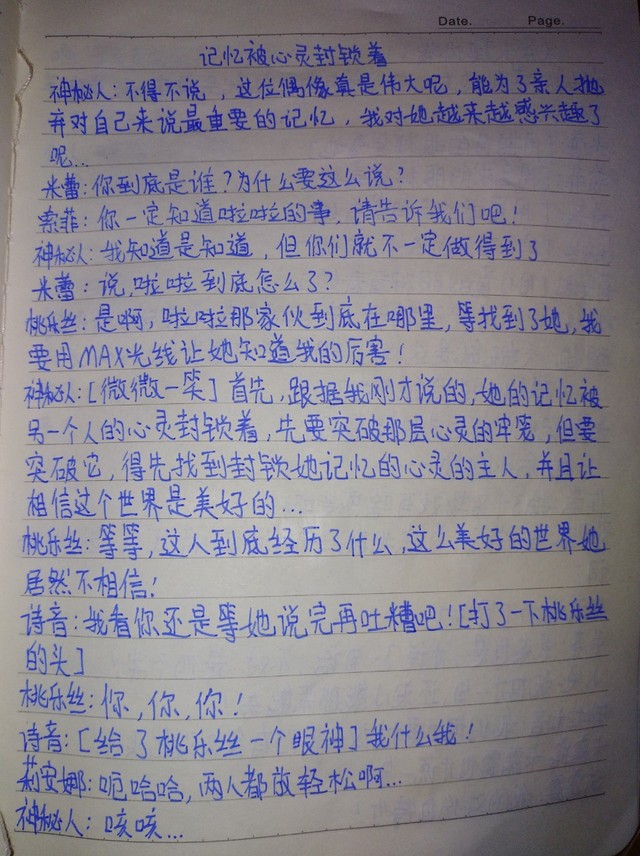 Date.
Page.
记忆被心灵封锁着
神秘人：不得不说，这位偶像真是伟大呢，能为了亲人抛
弃对自己来说最重要的记忆，我对她越来越感兴趣了
呢...
米蕾：你到底是谁？为什么要这么说？
索菲：你一定知道啦啦的事，请告诉我们吧！
神秘人：我知道是知道，但你们就不一定做得到了
米蕾：说，啦啦到底怎么了？
桃乐丝：是啊，啦啦那家伙到底在哪里，等找到了她，我
要用MAX光线让她知道我的厉害！
神秘人：[微微一笑]首先，跟据我刚才说的，她的记忆被
另一个人的心灵封锁着，先要突破那层心灵的牢笼，但要
突破它，得先找到封锁她记忆的心灵的主人，并且让
相信这个世界是美好的...
桃乐丝：等等，这人到底经历了什么，这么美好的世界她
居然不相信！
诗音：我看你还是等她说完再吐糟吧！[打了一下桃乐丝
的头]
桃乐丝：你，你，你！
诗音：[给了桃乐丝一个眼神]我什么我！
莉安娜：呃哈哈，两人都放轻松啊...
神秘人：咳咳...